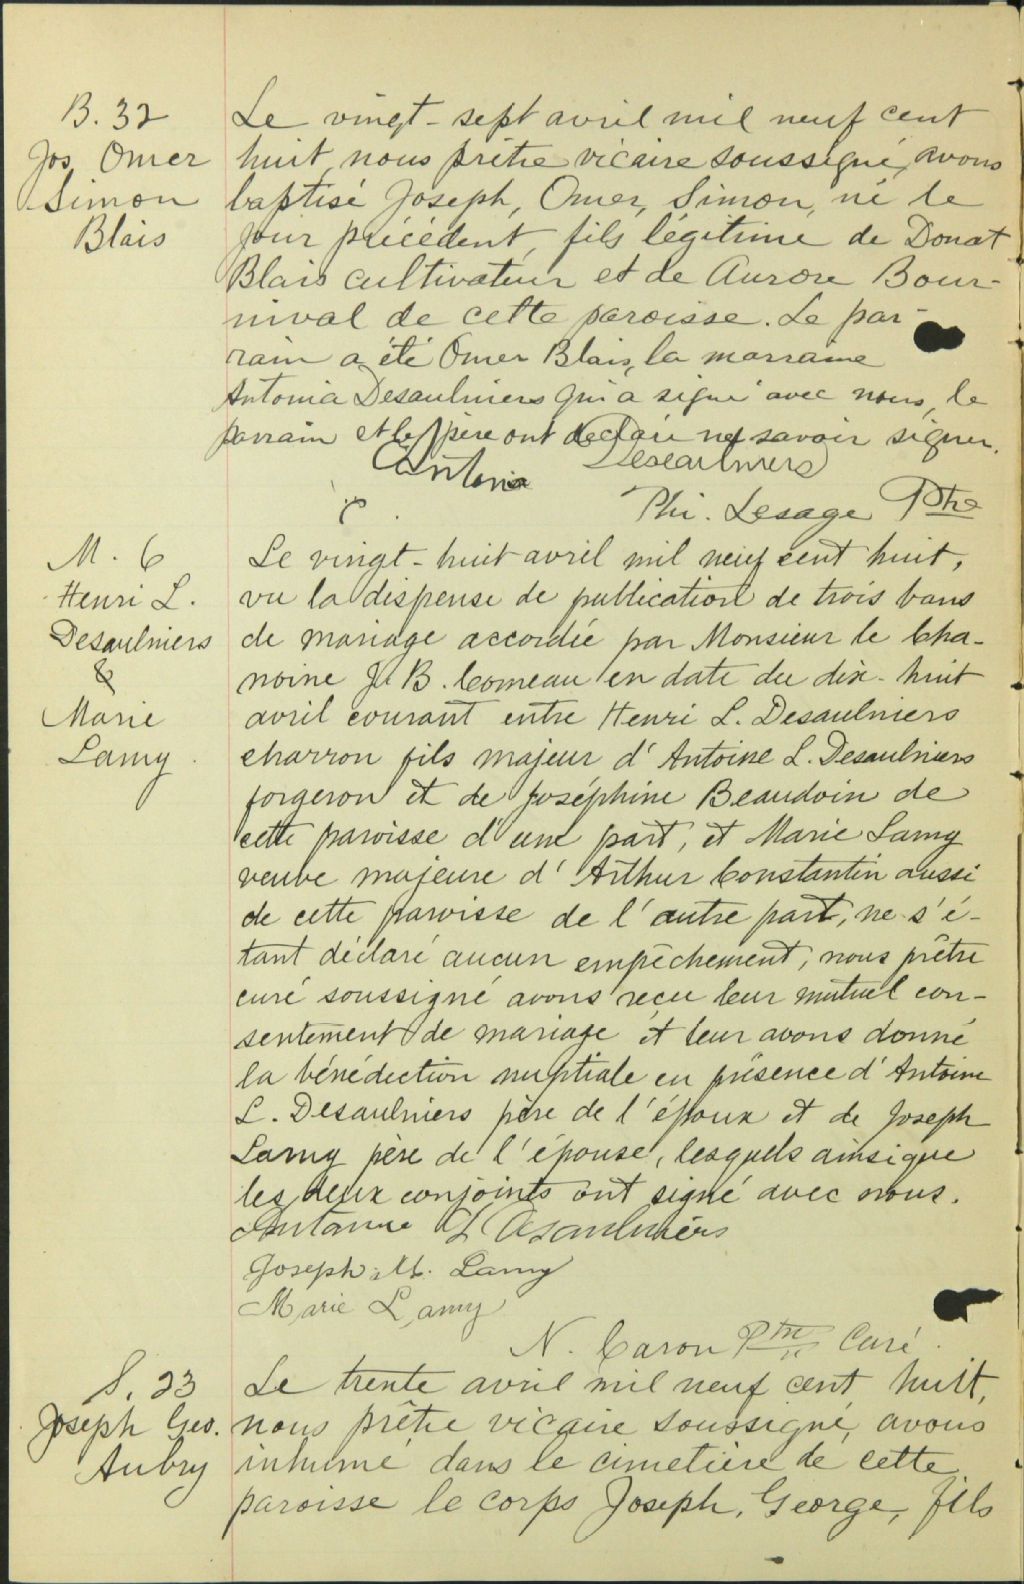 B. 32
Jos. Omer
Simon
Blais
Le vingt-sept avril mil neuf cent
huit, nous prêtre vicaire soussigné, avons
baptisé Joseph, Omer, Simon, né le
jour précédent, fils légitime de Donat
Blais cultivateur et de Aurore Bour-
nival de cette paroisse. Le par-
rain a été Omer Blais, la marraine
Antonia Desaulniers qui a signé avec nous, le
parrain et le père ont déclaré ne savoir signer.
Antonia Desaulniers
Phi. Lesage Ptre
M. 6
Henri L.
Desaulniers
&
Marie
Lamy
Le vingt-huit avril mil neuf cent huit,
vu la dispense de publication de trois bans
de mariage accordée par Monsieur le Cha-
noine J. B. Comeau en date du dix-huit
avril courant entre Henri L. Desaulniers
charron fils majeur d'Antoine L. Desaulniers
forgeron et de Joséphine Beaudoin de
cette paroisse d'une part, et Marie Lamy
veuve majeure d'Arthur Constantin aussi
de cette paroisse de l'autre part, ne s'é-
tant déclaré aucun empêchement, nous prêtre
curé soussigné avons reçu leur mutuel con-
sentement de mariage et leur avons donné
la bénédiction nuptiale en présence d'Antoine
L. Desaulniers père de l'époux et de Joseph
Lamy père de l'épouse, lesquels ainsi que
les deux conjoints ont signé avec nous.
Antoine L Desaulniers
Joseph M. Lamy
Marie Lamy
N. Caron Ptre Curé.
S. 23
Joseph Geo.
Aubry
Le trente avril mil neuf cent huit,
nous prêtre vicaire soussigné, avons
inhumé dans le cimetière de cette
paroisse le corps Joseph, George, fils